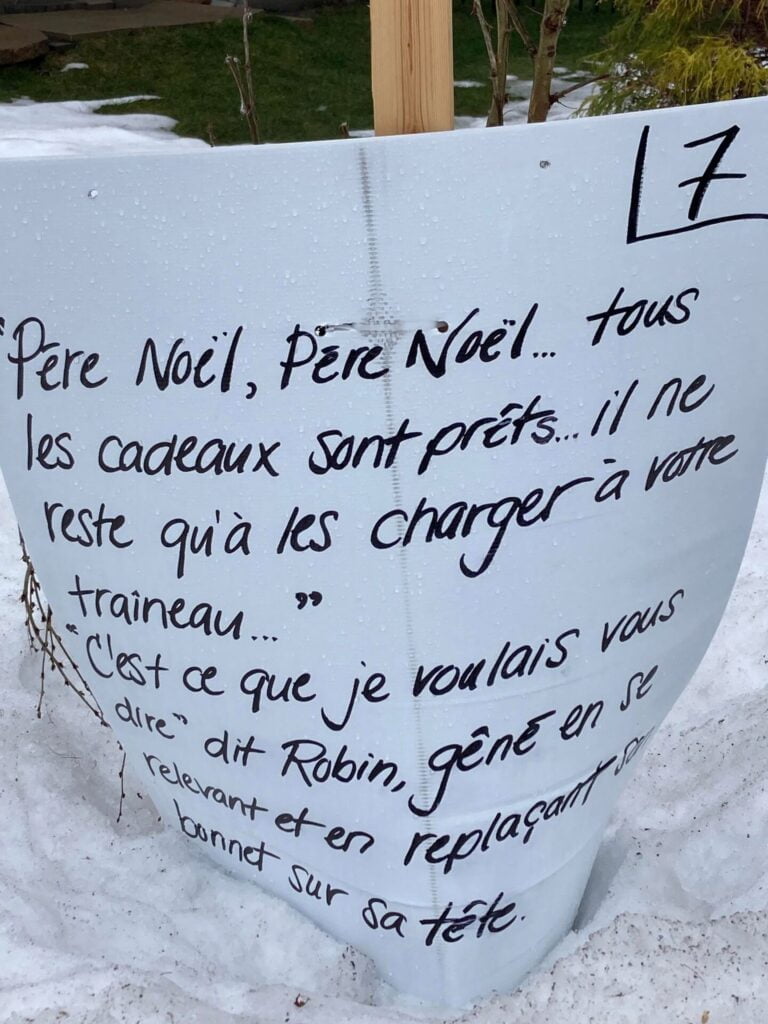 7
"Père Noël, Père Noël... tous
les cadeaux sont prêts... il ne
reste qu'à les charger à votre
traîneau..."
"C'est ce que je voulais vous
dire" dit Robin, gêné en se
relevant et en replaçant son
bonnet sur sa tête.